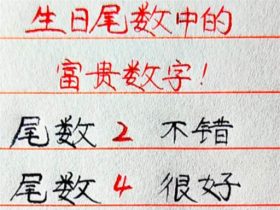 生日尾数中的
富贵数字！
尾数 2 不错
尾数 4 很好